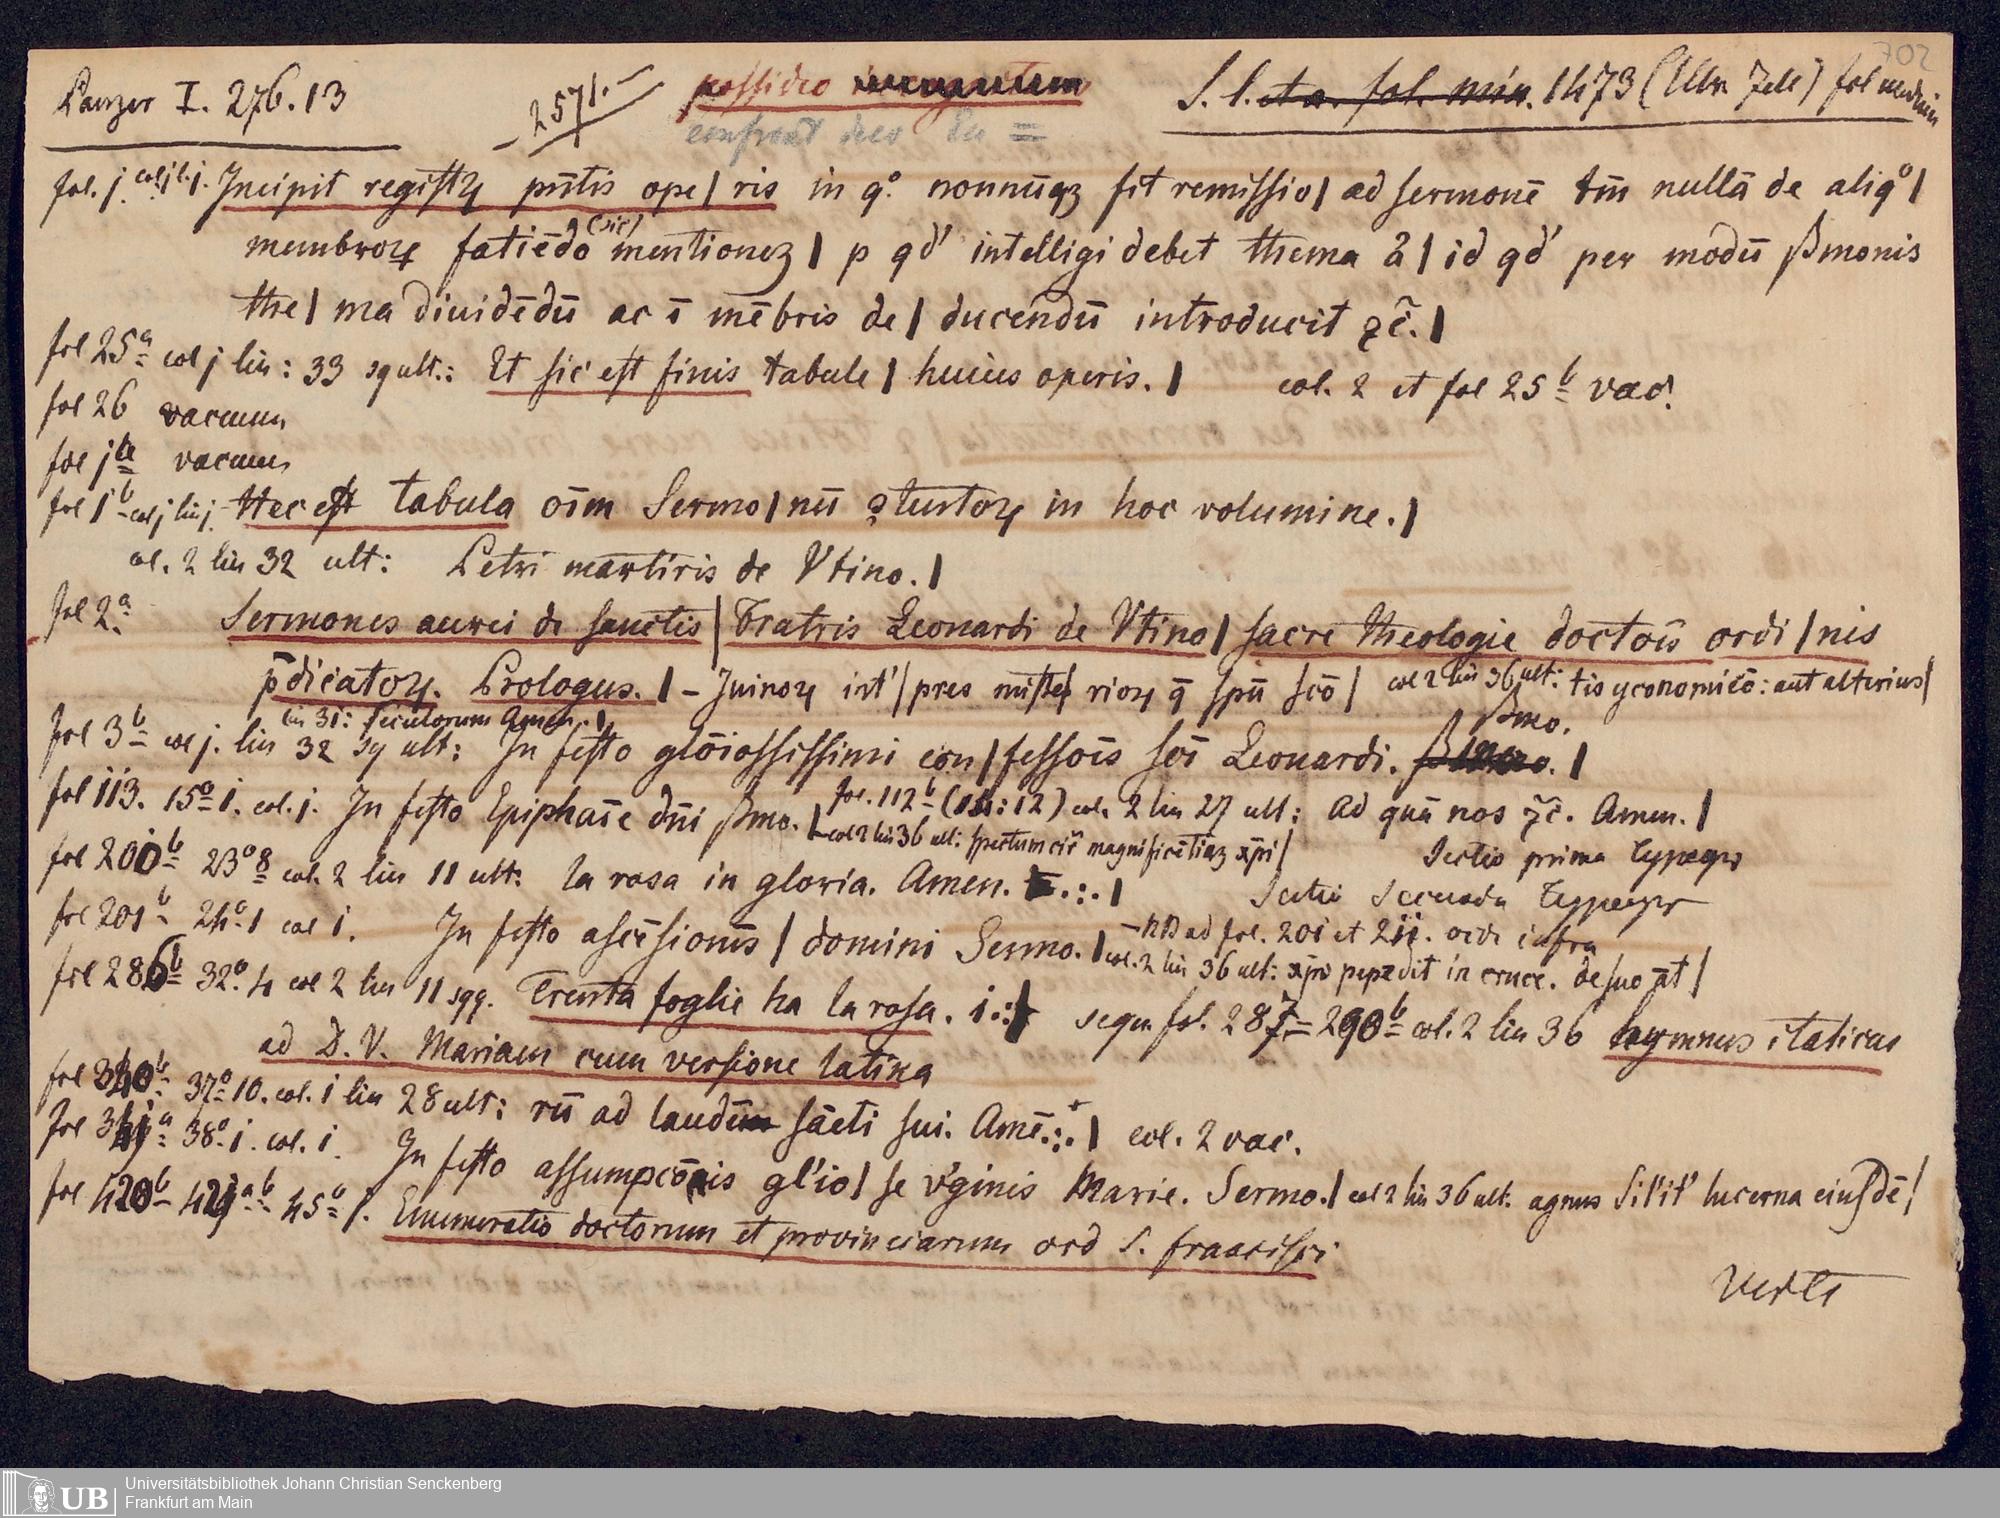 702
Panzer I. 276.13
257/.-
possideo
confront
S. l. et a. fol. min. 1473 (Ulr. Zele) fol medium
fol. j. col j l. j. Incipit registꝝ pn̄tis ope | ris in qº nonnūqȝ fit remissio | ad sermonē tm̄ nullā de aliqº |
membroꝝ fatiēdo (sic) mentionez | p qd' intelligi debet thema a | id qd' per modū ßmonis
the | ma diuidēdū ac ī mēbris de | ducendū introducit ꝛc̄. |
fol 25ª col j lin: 33 sq ult.: Et sic est finis tabule | huius operis. | col. 2 et fol 25ᵇ vac.
fol 26 vacuum
fol jª vacuum
fol 1ᵇ col j lin j. Hec est tabula oīm Sermo | nū ꝯtentoꝝ in hoc volumine. |
col. 2 lin 32 ult: Petri martiris de Vtino. |
fol 2ª Sermones aurei de sanctis | Fratris Leonardi de Vtino | sacre theologie doctoīs ordi | nis
p̄dicatoꝝ. Prologus. | – Juinoꝝ int' | pres miste | rioꝝ q̄ spū scō | col 2 lin 36 ult: tis yconomicō: aut alterius |
lin 31: Seculorum Amen. |
ßmo.
fol 3ᵇ col j. lin 32 sq ult: In festo glōiossissimi con | fessoīs sc̄i Leonardi. |
fol 113. 15ª i. col. j. In festo Epiphaīe dn̄i ßmo. | fol. 112ᵇ (14:12) col. 2 lin 27 ult: ad quā nos ꝛc̄. Amen. |
col 2 lin 36 ult: spectum magnificētiaȝ xp̄i |
Sectio prima
fol 200ᵇ 23ª 8 col. 2 lin 11 ult: la rosa in gloria. Amen. .:. |
Sectio Secunda
fol 201ᵇ 24ª 1 col i. In festo ascēsionis | domini Sermo. | – NB ad fol. 201 et 211. vide infra
col. 2 lin 36 ult: xp̄s pepēdit in cruce. de suo āt |
fol 286ᵇ 32ª. 4 col 2 lin 11 sqq. Trenta foglie ha la rosa. i.:| sequ. fol. 287 = 290ᵇ col. 2 lin 36 hymnus italicus
ad D. V. Mariam cum versione latina
fol 340ᵇ 37ª 10. col. i lin 28 ult: rū ad laudē sācti sui. Amē.:. | col. 2 vac.
fol 341ª 38ª. i. col. i. In festo assumpcōnis gl'io | se v'ginis Marie. Sermo. | col 2 lin 36 ult. agnus Sil'it' lucerna eiusdē |
fol 420ᵇ 421ª ᵇ 45ª Enumeratio doctorum et provinciarum ord S. francisci
verte
UB
Universitätsbibliothek Johann Christian Senckenberg
Frankfurt am Main